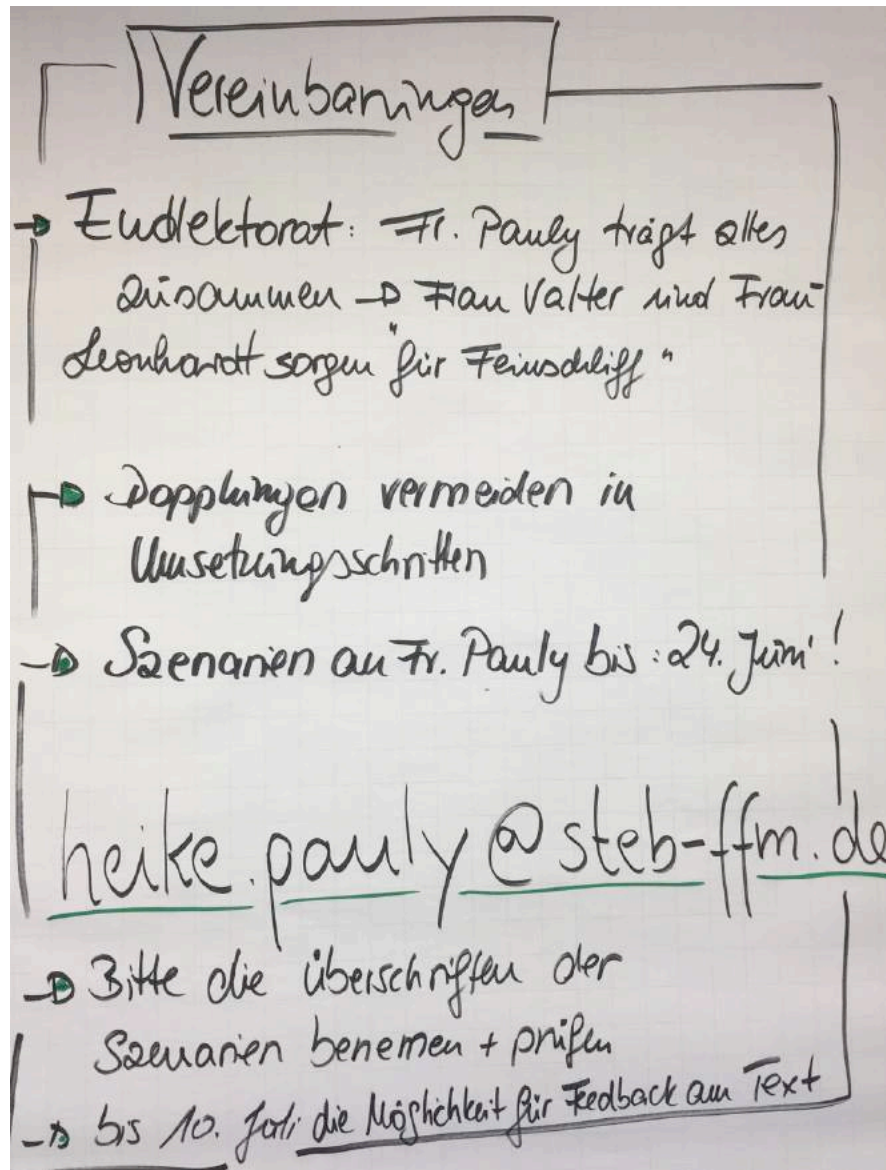 Vereinbarungen
Endlektorat: Fr. Pauly trägt alles
zusammen → Frau Valter und Frau
Leonhardt sorgen "für Feinschliff"
Dopplungen vermeiden in
Umsetzungsschritten
→ Szenarien an Fr. Pauly bis: 24. Juni!
heike.pauly@steb-ffm.de
→ Bitte die Überschriften der
Szenarien benennen + prüfen
→ bis 10. Juli die Möglichkeit für Feedback am Text